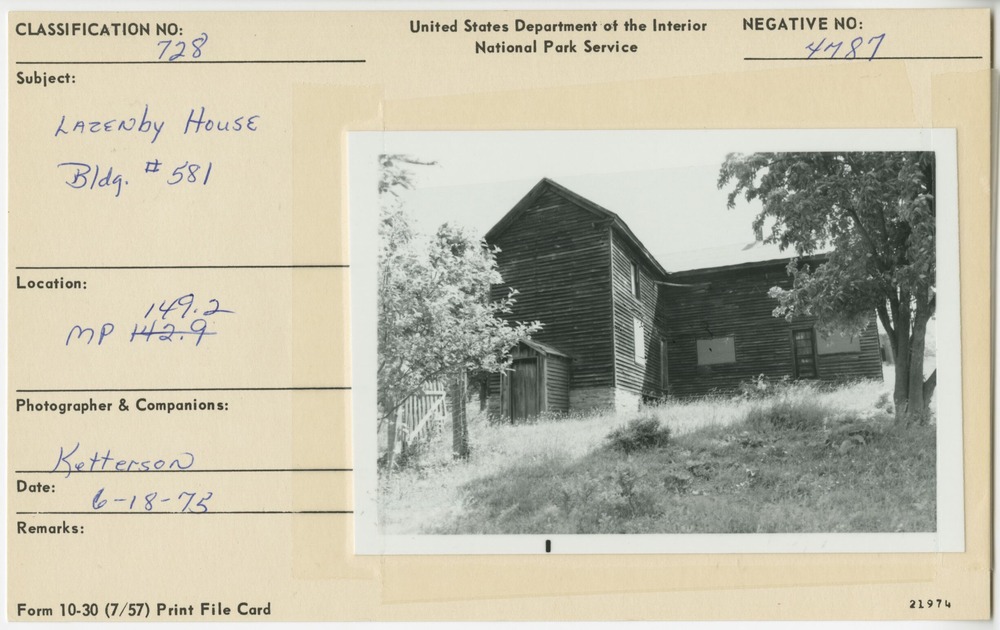 CLASSIFICATION NO:
728
United States Department of the Interior
National Park Service
NEGATIVE NO:
4787
Subject:
LAZENby HOUSE
Bldg. # 581
Location:
149.2
MP 142.9
Photographer & Companions:
Ketterson
Date:
6-18-75
Remarks:
Form 10-30 (7/57) Print File Card
21974